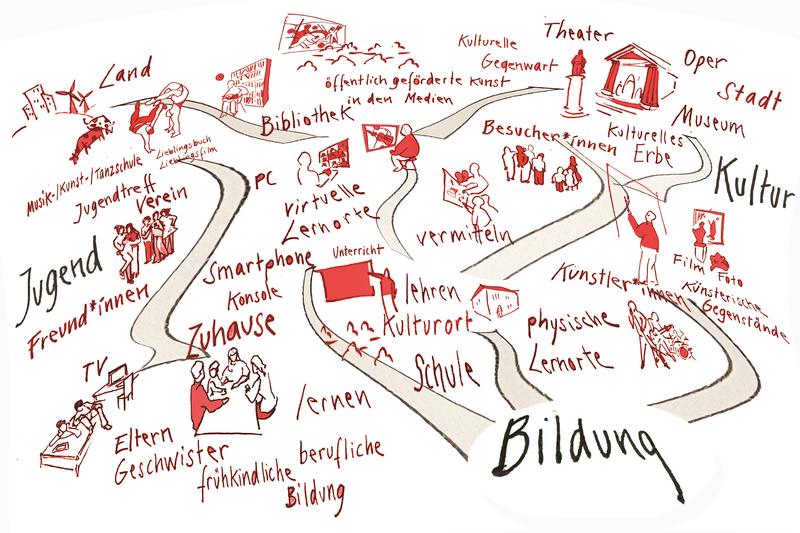 Land
Theater
Kulturelle
Gegenwart
Oper
Stadt
öffentlich geförderte Kunst
in den Medien
Bibliothek
Besucher*innen
Kulturelles
Erbe
Museum
Kultur
Lieblingsbuch
Lieblingsfilm
Musik-/Kunst-/Tanzschule
Jugendtreff
Verein
PC
virtuelle
Lernorte
vermitteln
Jugend
Freund*innen
Smartphone
Konsole
Unterricht
lehren
Kulturort
Künstler*innen
Film
Foto
Künsterische
Gegenstände
Zuhause
TV
Schule
physische
Lernorte
lernen
Eltern
Geschwister
frühkindliche
berufliche
Bildung
Bildung